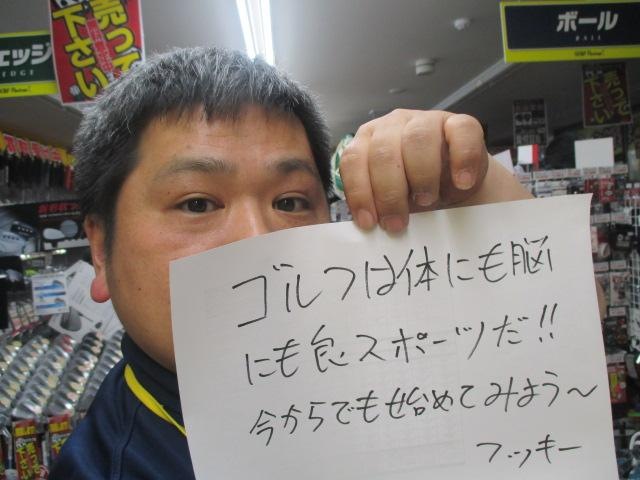 エッジ
売って下さい
ボール
BALL
売って下さい
ゴルフは体にも脳
にも良いスポーツだ!!
今からでも始めてみよう〜
フッキー